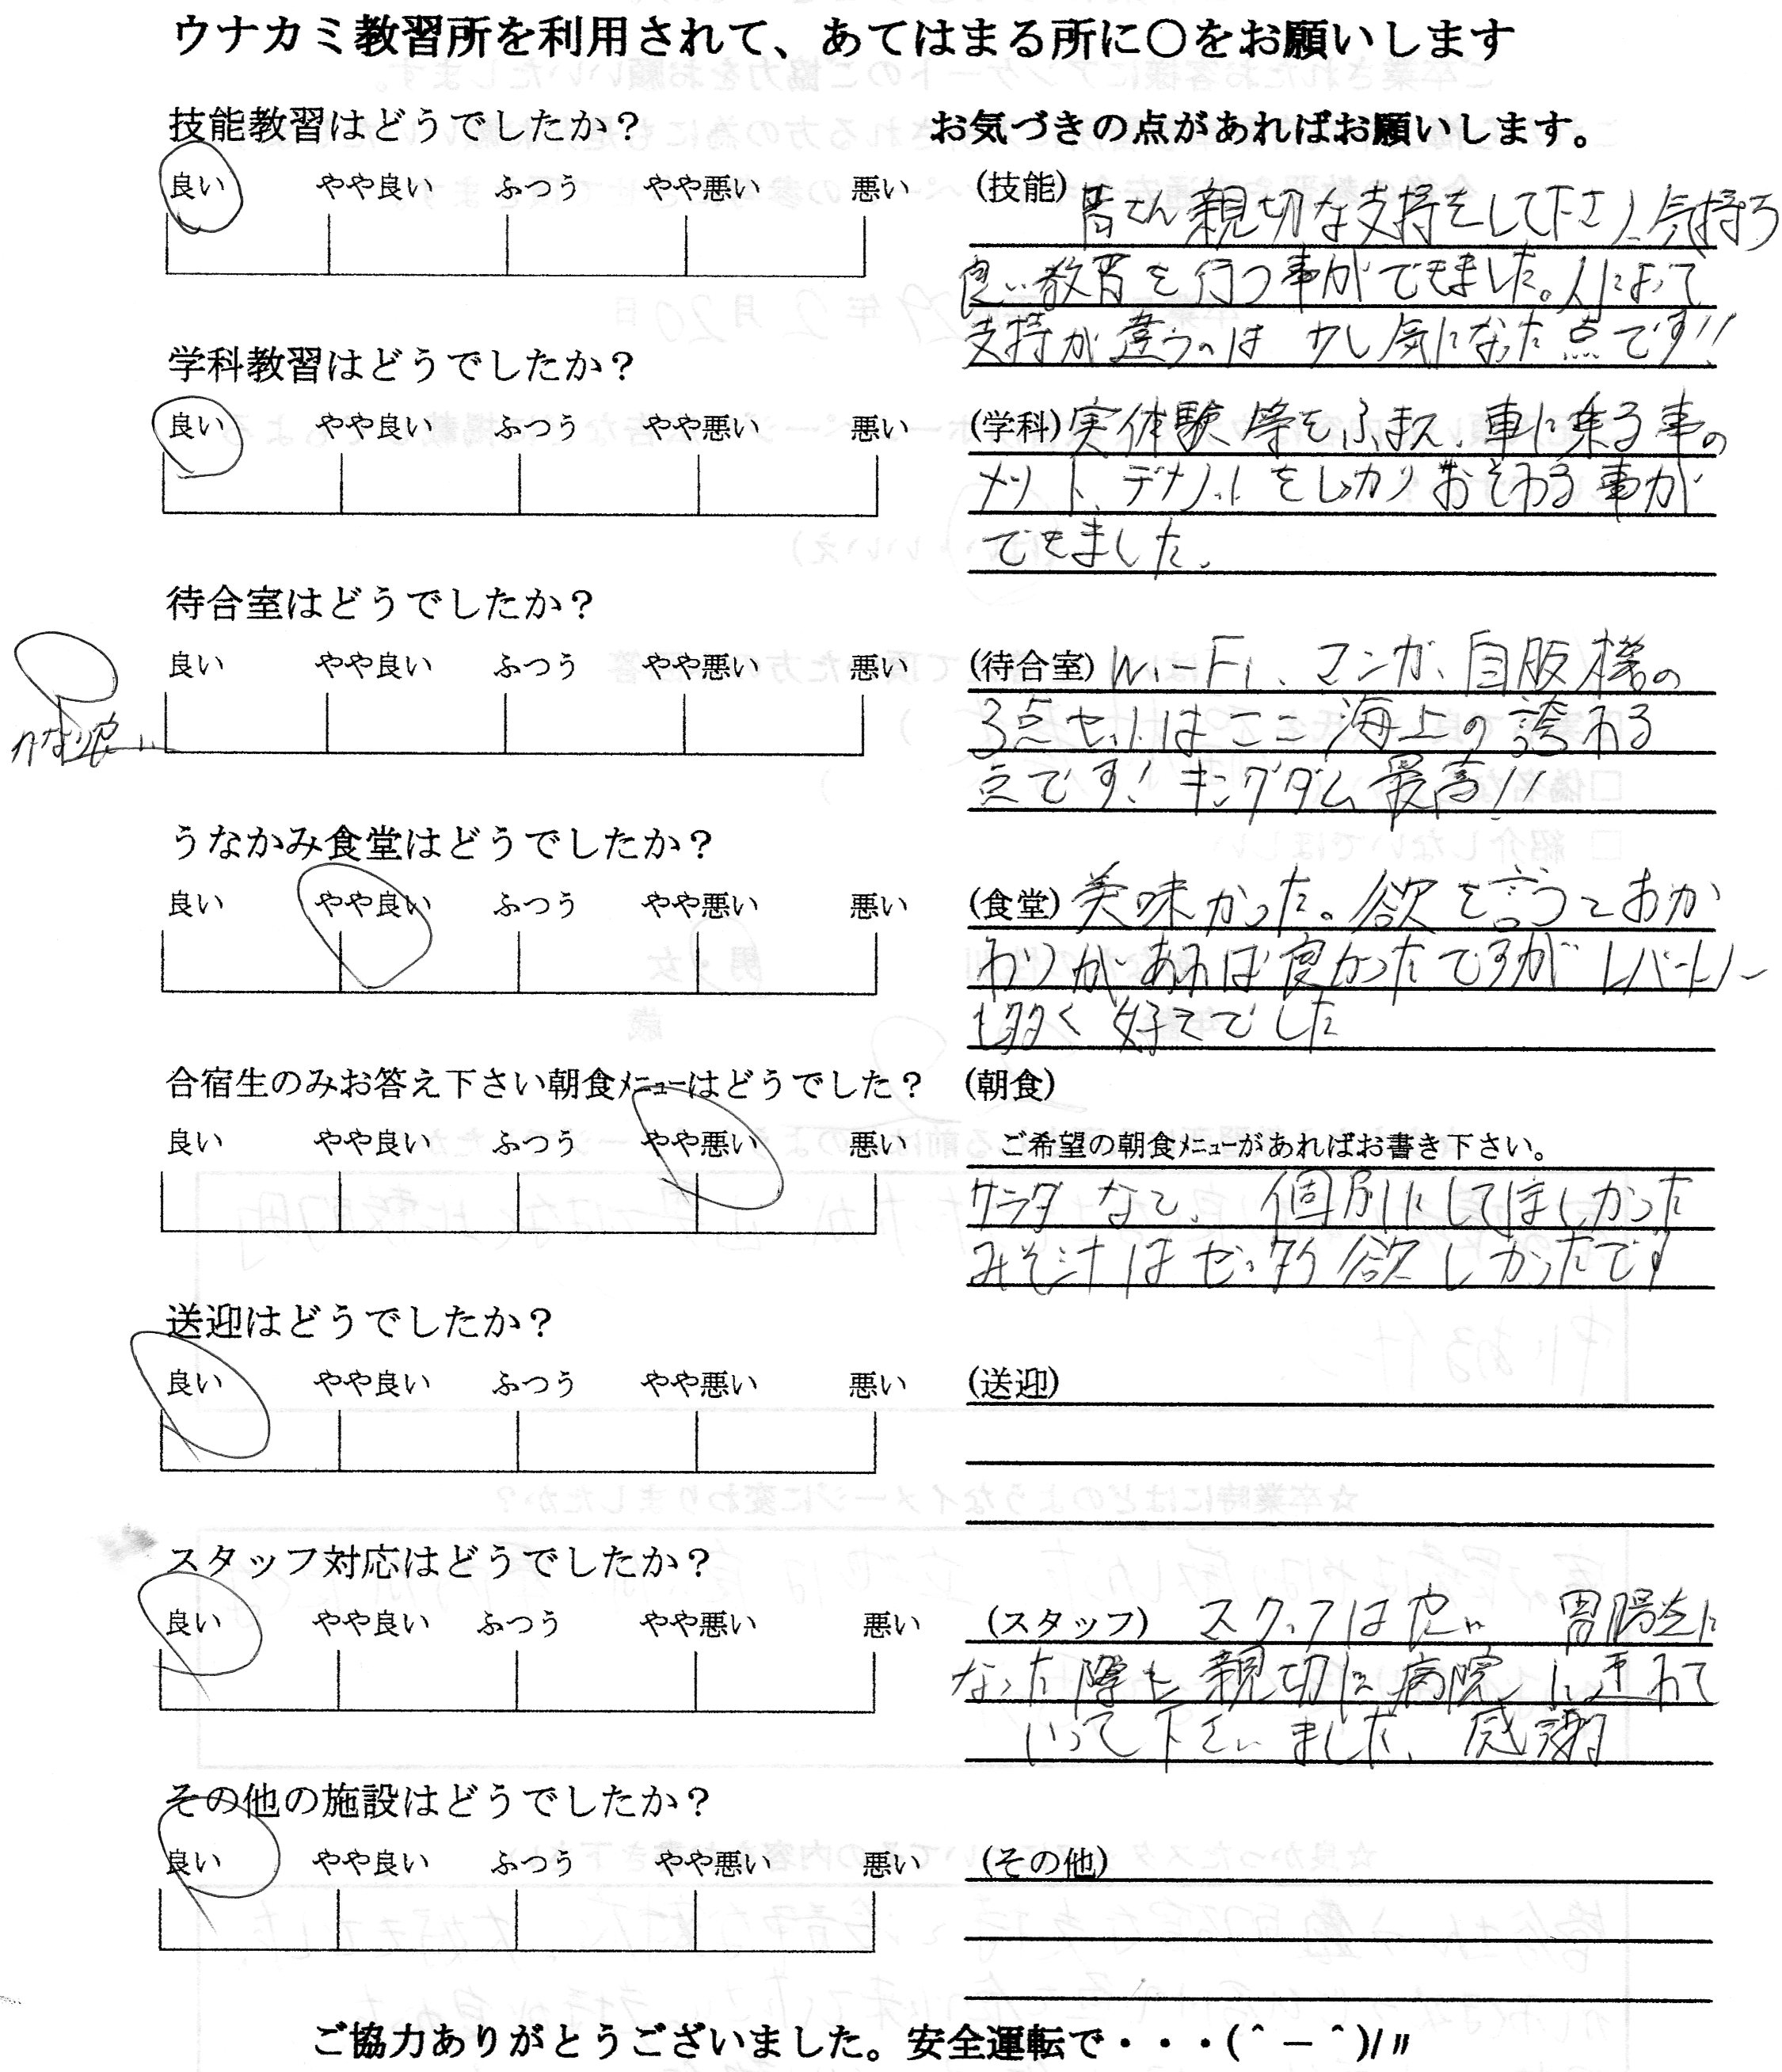 ウナカミ教習所を利用されて、あてはまる所に〇をお願いします
技能教習はどうでしたか？
お気づきの点があればお願いします。
良い やや良い ふつう やや悪い 悪い
(技能) 皆さん親切な支持をして下さり、気持ち
良い教習を行う事ができました。人によって
支持が違うのは 少し気になった点です!!
学科教習はどうでしたか？
良い やや良い ふつう やや悪い 悪い
(学科) 実体験等をふまえ、車に乗る事の
メリット、デメリットをしっかりおそわる事が
できました。
待合室はどうでしたか？
良い やや良い ふつう やや悪い 悪い
かなり良い
(待合室) Wi-Fi、マンガ、自販機の
3点セットはここ海上の誇れる
点です! キングダム最高!!
うなかみ食堂はどうでしたか？
良い やや良い ふつう やや悪い 悪い
(食堂) 美味かった。欲を言うとおか
わりがあれば良かったですが レパートリー
も多く 好きでした
合宿生のみお答え下さい朝食ﾒﾆｭｰはどうでした？
(朝食)
良い やや良い ふつう やや悪い 悪い
ご希望の朝食ﾒﾆｭｰがあればお書き下さい。
サラダなど、個別にしてほしかった
みそ汁はゼッタイ欲しかったです
送迎はどうでしたか？
良い やや良い ふつう やや悪い 悪い
(送迎)
スタッフ対応はどうでしたか？
良い やや良い ふつう やや悪い 悪い
(スタッフ) スタッフは良い 胃腸炎に
なった際も親切に病院に連れて
いって下さいました、感謝
その他の施設はどうでしたか？
良い やや良い ふつう やや悪い 悪い
(その他)
ご協力ありがとうございました。安全運転で・・・(＾－＾)/〃